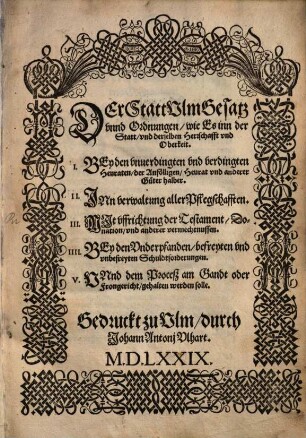 DEr Statt Vlm Gesatz
vnnd Ordnungen/ wie Es inn der
Statt/ vnd derselben Herrschafft vnd
Oberkeit.
I. BEy den vnuerdingten vnd verdingten
Heuraten/ der Anfölligen/ Heurat vnd anderer
Güter halber.
II. INn verwaltung aller Pflegschafften.
III. MIt vffrichtung der Testament/ Do-
nation/ vnd anderer vermechtnussen.
IIII. BEy den Vnderpfanden/ befreyten vnd
vnbefreyten Schuldtforderungen.
V. VNnd dem Proceß am Gandt oder
Frongericht/ gehalten werden solle.
Gedruckt zu Vlm/ durch
Johann Antonj Vlhart.
M.D.LXXIX.